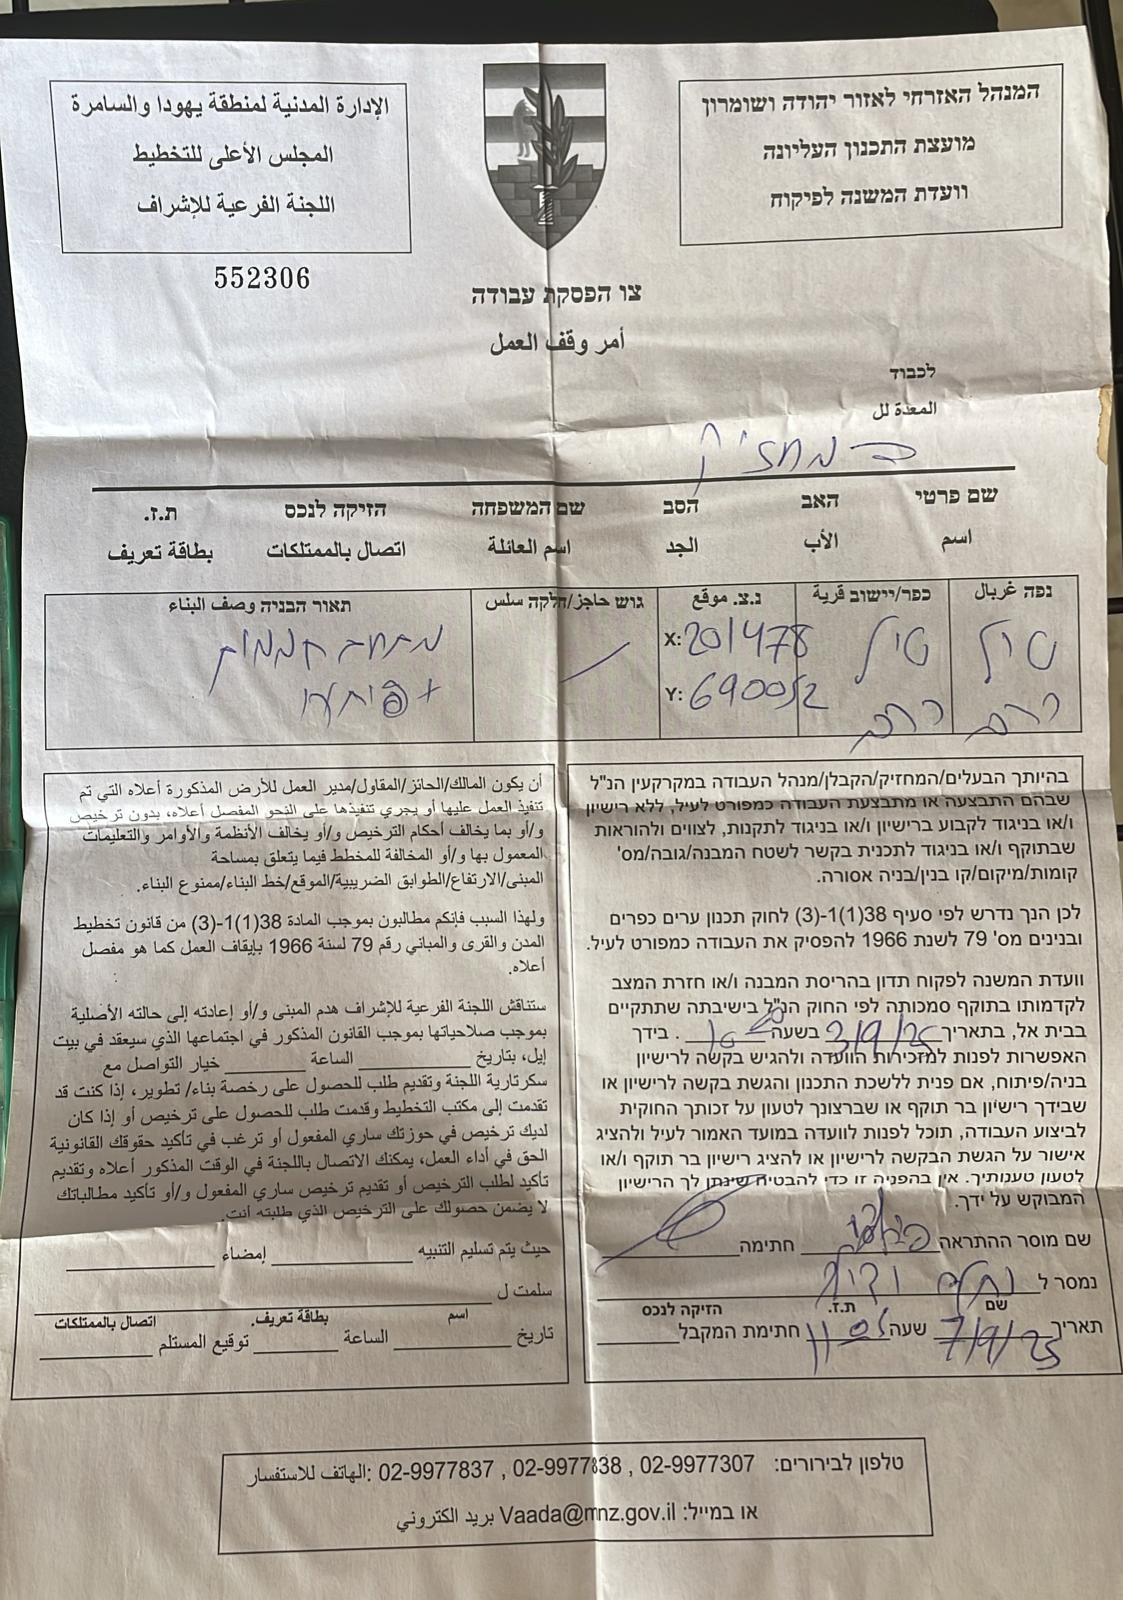 המנהל האזרחי לאזור יהודה ושומרון
מועצת התכנון העליונה
וועדת המשנה לפיקוח
الإدارة المدنية لمنطقة يهودا والسامرة
المجلس الأعلى للتخطيط
اللجنة الفرعية للإشراف
552306
צו הפסקת עבודה
أمر وقف العمل
לכבוד
المعدة لل
המחזיק
שם פרטי האב הסב שם המשפחה הזיקה לנכס ת.ז.
اسم الأب الجد اسم العائلة اتصال بالممتلكات بطاقة تعريف
נפה غربال כפר/יישוב قرية נ.צ. موقع גוש حاجز/חלקה سلس תאור הבניה وصف البناء
X: 201478
Y: 690052
בהיותך הבעלים/המחזיק/הקבלן/מנהל העבודה במקרקעין הנ"ל
שבהם התבצעה או מתבצעת העבודה כמפורט לעיל, ללא רישיון
ו/או בניגוד לקבוע ברישיון ו/או בניגוד לתקנות, לצווים ולהוראות
שבתוקף ו/או בניגוד לתכנית בקשר לשטח המבנה/גובה/מס'
קומות/מיקום/קו בנין/בניה אסורה.
לכן הנך נדרש לפי סעיף 38(1)-1(3) לחוק תכנון ערים כפרים
ובנינים מס' 79 לשנת 1966 להפסיק את העבודה כמפורט לעיל.
וועדת המשנה לפקוח תדון בהריסת המבנה ו/או חזרת המצב
לקדמותו בתוקף סמכותה לפי החוק הנ"ל בישיבתה שתתקיים
בבית אל, בתאריך בשעה . בידך
האפשרות לפנות למזכירות הוועדה ולהגיש בקשה לרישיון
בניה/פיתוח, אם פנית ללשכת התכנון והגשת בקשה לרישיון או
שבידך רישיון בר תוקף או שברצונך לטעון על זכותך החוקית
לביצוע העבודה, תוכל לפנות לוועדה במועד האמור לעיל ולהציג
אישור על הגשת הבקשה לרישיון או להציג רישיון בר תוקף ו/או
לטעון טענותיך. אין בהפניה זו כדי להבטיח שינתן לך הרישיון
המבוקש על ידך.
שם מוסר ההתראה חתימה
נמסר ל
שם ת.ז. הזיקה לנכס
תאריך 7/9/25 שעה חתימת המקבל
أن يكون المالك/الحائز/المقاول/مدير العمل للأرض المذكورة أعلاه التي تم
تنفيذ العمل عليها أو يجري تنفيذها على النحو المفصل أعلاه، بدون ترخيص
و/أو بما يخالف أحكام الترخيص و/أو يخالف الأنظمة والأوامر والتعليمات
المعمول بها و/أو المخالفة للمخطط فيما يتعلق بمساحة
المبنى/الارتفاع/الطوابق الضريبية/الموقع/خط البناء/ممنوع البناء.
ولهذا السبب فإنكم مطالبون بموجب المادة 38(1)-1(3) من قانون تخطيط
المدن والقرى والمباني رقم 79 لسنة 1966 بإيقاف العمل كما هو مفصل
أعلاه.
ستناقش اللجنة الفرعية للإشراف هدم المبنى و/أو إعادته إلى حالته الأصلية
بموجب صلاحياتها بموجب القانون المذكور في اجتماعها الذي سيعقد في بيت
إيل، بتاريخ الساعة خيار التواصل مع
سكرتارية اللجنة وتقديم طلب للحصول على رخصة بناء/ تطوير، إذا كنت قد
تقدمت إلى مكتب التخطيط وقدمت طلب للحصول على ترخيص أو إذا كان
لديك ترخيص في حوزتك ساري المفعول أو ترغب في تأكيد حقوقك القانونية
الحق في أداء العمل، يمكنك الاتصال باللجنة في الوقت المذكور أعلاه وتقديم
تأكيد لطلب الترخيص أو تقديم ترخيص ساري المفعول و/أو تأكيد مطالباتك
لا يضمن حصولك على الترخيص الذي طلبته أنت.
حيث يتم تسليم التنبيه إمضاء
سلمت ل
اسم بطاقة تعريف. اتصال بالممتلكات
تاريخ الساعة توقيع المستلم
טלפון לבירורים: 02-9977307 , 02-9977838 , 02-9977837 :الهاتف للاستفسار
או במייל: Vaada@mnz.gov.il بريد الكتروني